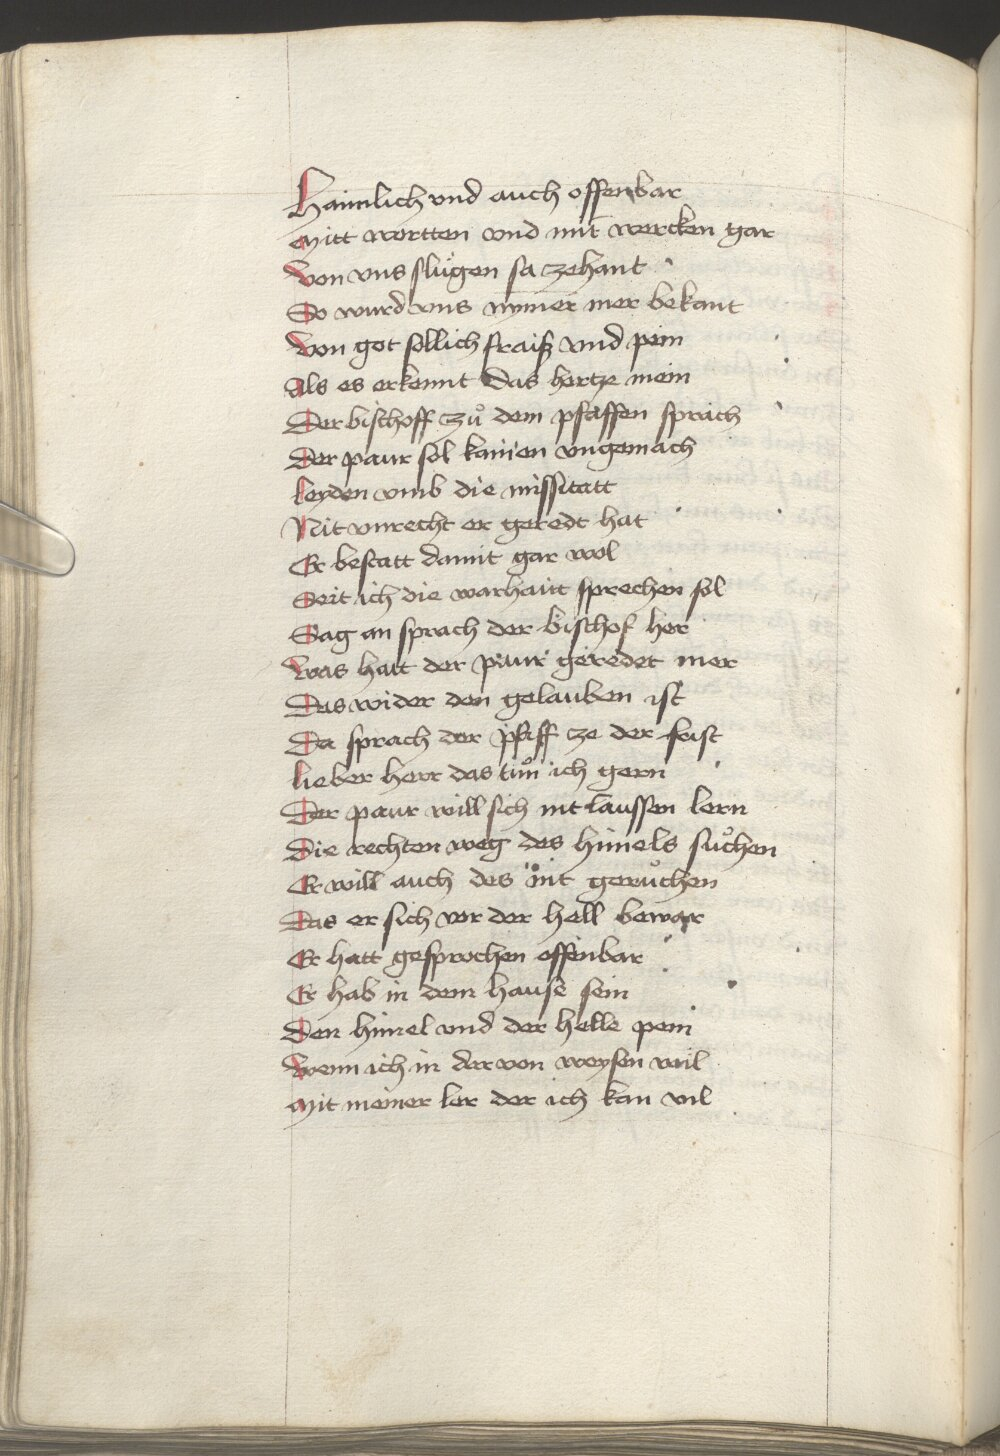 Haimlich vnd auch offenbar
Mitt wortten vnd mit wercken gar
Von vns slůgen sa zehant
So wurd vns nymer mer bekant
Von got sollich fraiß vnd pein
Als es erkennt das hertze mein
Der bischoff zů dem pfaffen sprach
Der paur sol kainen vngemach
Leyden vmb die missitatt
Nit vnrecht er geredt hat
Er bestatt damit gar wol
Seit ich die warhaitt sprechen sol
Sag an sprach der bischof her
Was hatt der paur geredet mer
Das wider den gelauben ist
Da sprach der pfaff ze der frist
Lieber herr das tůn ich gern
Der paur will sich nit laussen lern
Die rechten weg des himels sůchen
Er will auch des nit gerůchen
Das er sich vor der hell bewar
Er hatt gesprochen offenbar
Er hab in dem hause sein
Den himel vnd der helle pein
Wenn ich in dar von weysen wil
Mit meiner ler der ich kan vil